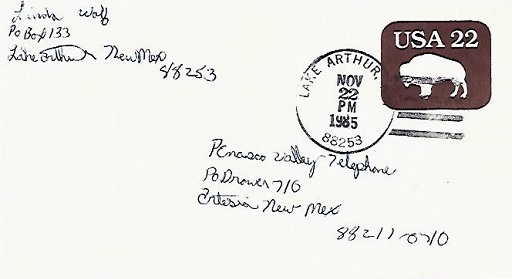 Linda Wolf
Po Box 133
Lake Arthur New Mex
88253
USA 22
LAKE ARTHUR,
NOV
22
PM
1985
88253
Penasco Valley Telephone
Po Drawer 710
Artesia New Mex
88211-0710